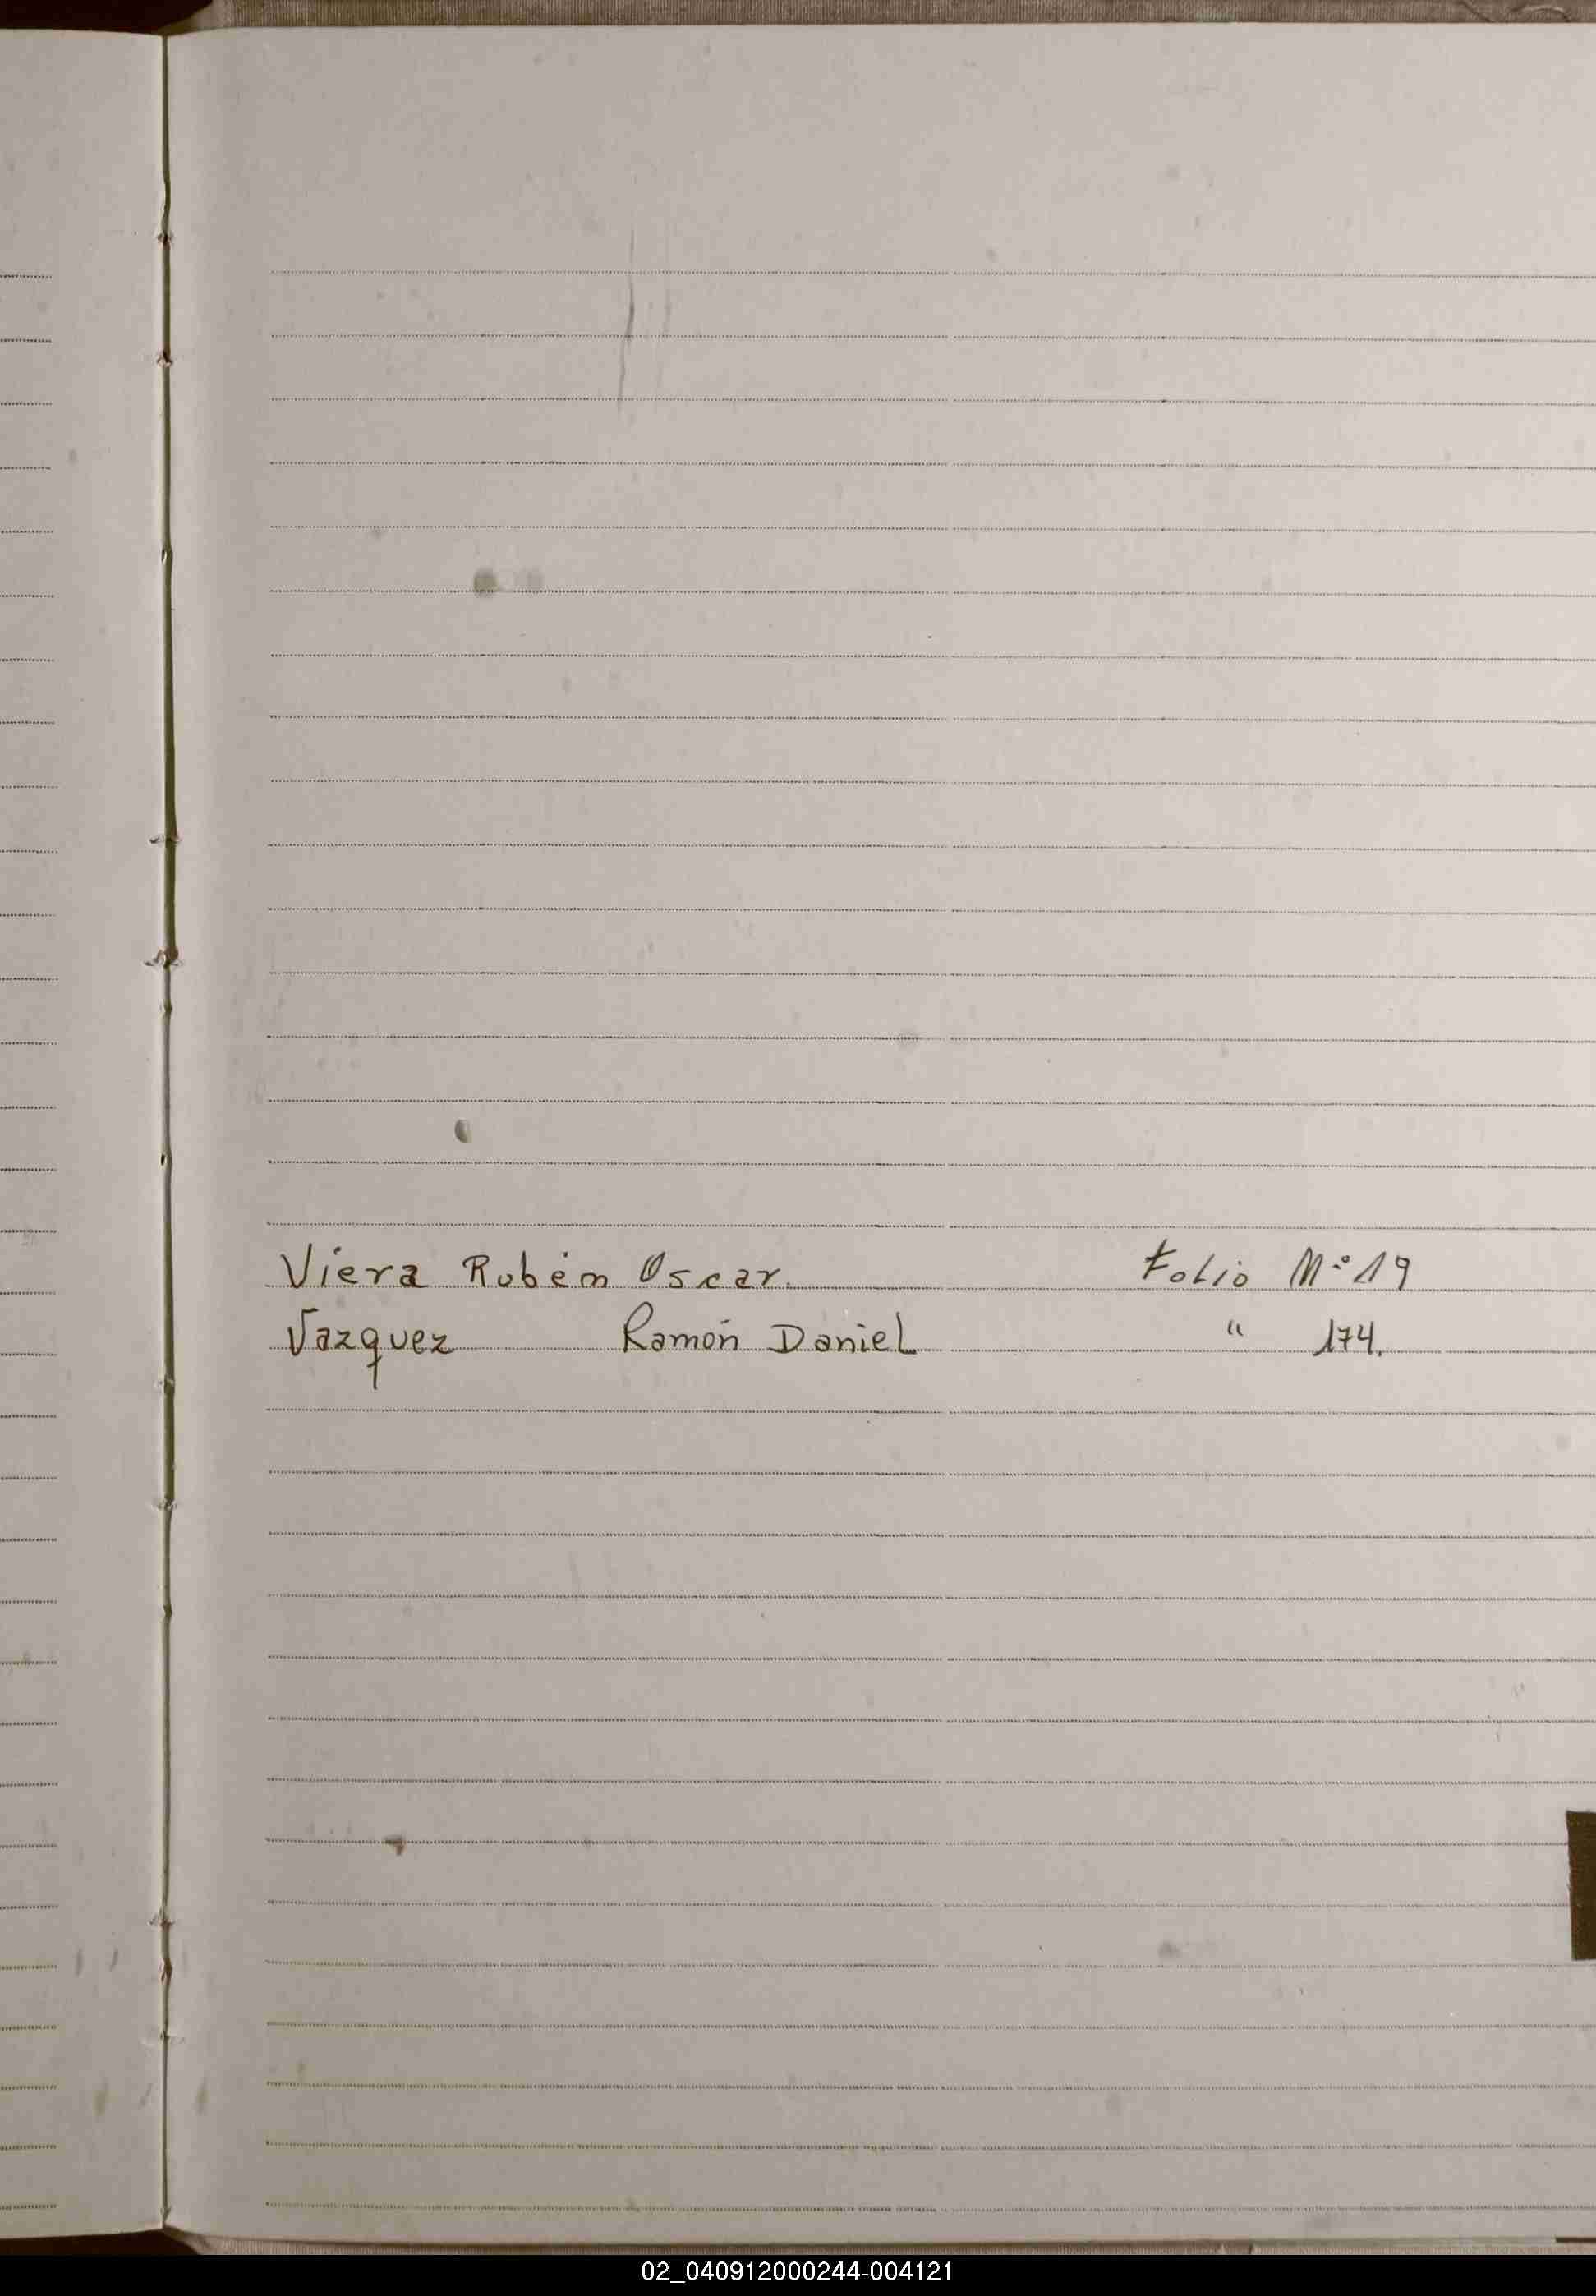 Viera Rubén Oscar. Folio Nº 19
Vazquez Ramón Daniel " 174.
02_040912000244-004121